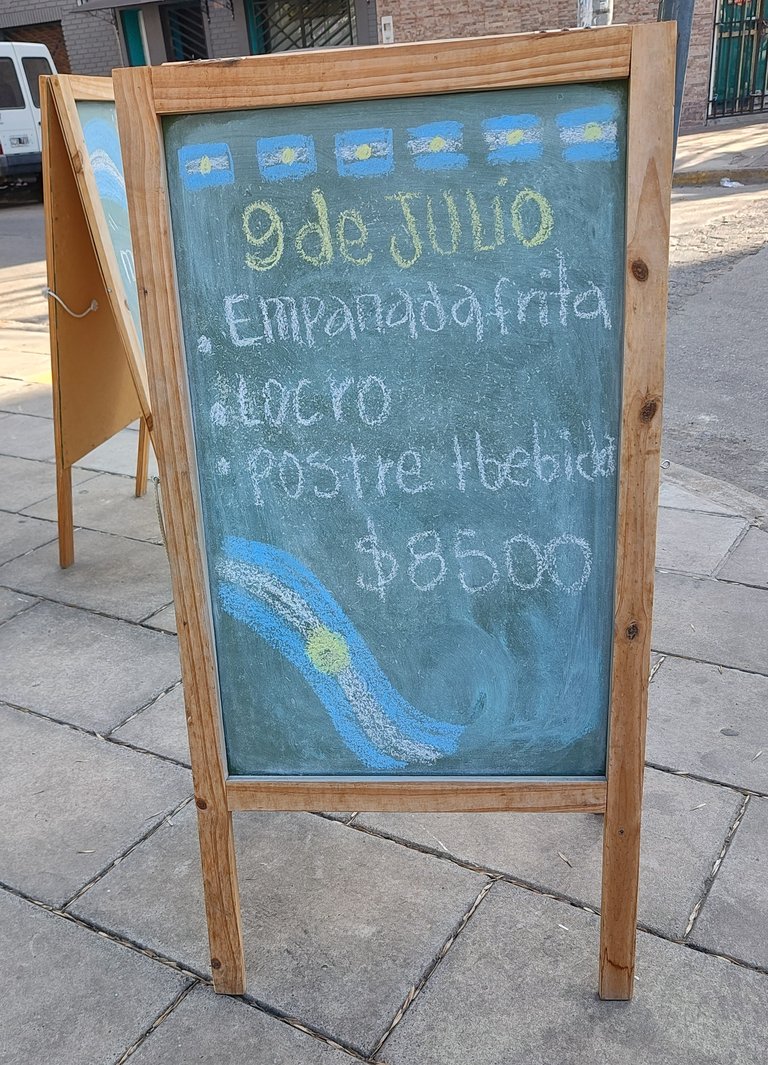 9 de JULIO
. Empanada frita
. Locro
. Postre + bebida
$8500